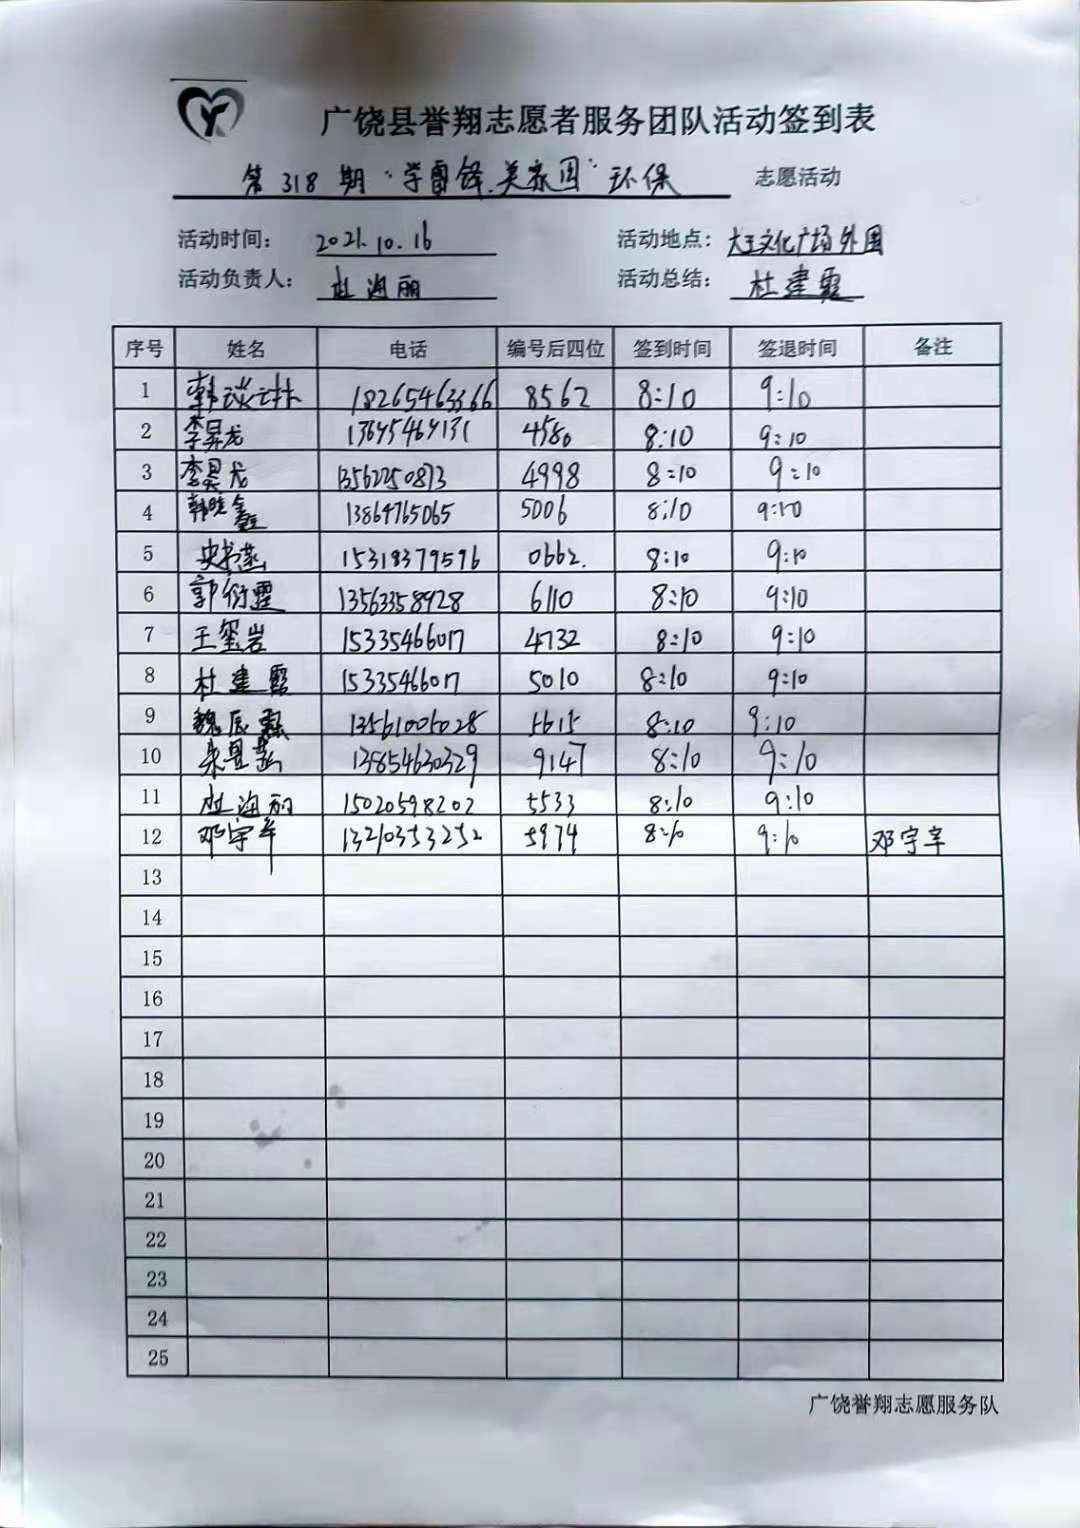 广饶县誉翔志愿者服务团队活动签到表
第 318 期 "学雷锋.美家园" 环保 志愿活动
活动时间: 2021.10.16 活动地点: 大王文化广场外围
活动负责人: 杜海丽 活动总结: 杜建霞
序号 姓名 电话 编号后四位 签到时间 签退时间 备注
1 18265463366 8562 8:10 9:10
2 李昊龙 13695464131 4580 8:10 9:10
3 李昊龙 13562250873 4998 8:10 9:10
4 韩晓鑫 13864765065 5006 8:10 9:10
5 史书燕 15318379596 0662. 8:10 9:10
6 郭衍霞 13563358928 6110 8:10 9:10
7 王玺岩 15335466017 4732 8:10 9:10
8 杜建霞 15335466017 5010 8:10 9:10
9 魏辰 13561006028 5615 8:10 9:10
10 13854630329 9147 8:10 9:10
11 杜海丽 15020598202 5533 8:10 9:10
12 邓宇辛 13210353252 5974 8:10 9:10 邓宇辛
13
14
15
16
17
18
19
20
21
22
23
24
25
广饶誉翔志愿服务队